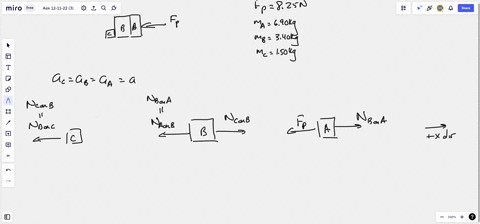 miro
free
Ask 12-11-22 (3)
Share
C B A
Fp
Fp = 8.25N
mA = 6.90kg
mB = 3.40kg
mC = 1.50kg
aC = aB = aA = a
NC on B
=
NB on C
C
NB on A
=
NA on B
B
NC on B
Fp
A
NB on A
+x dir